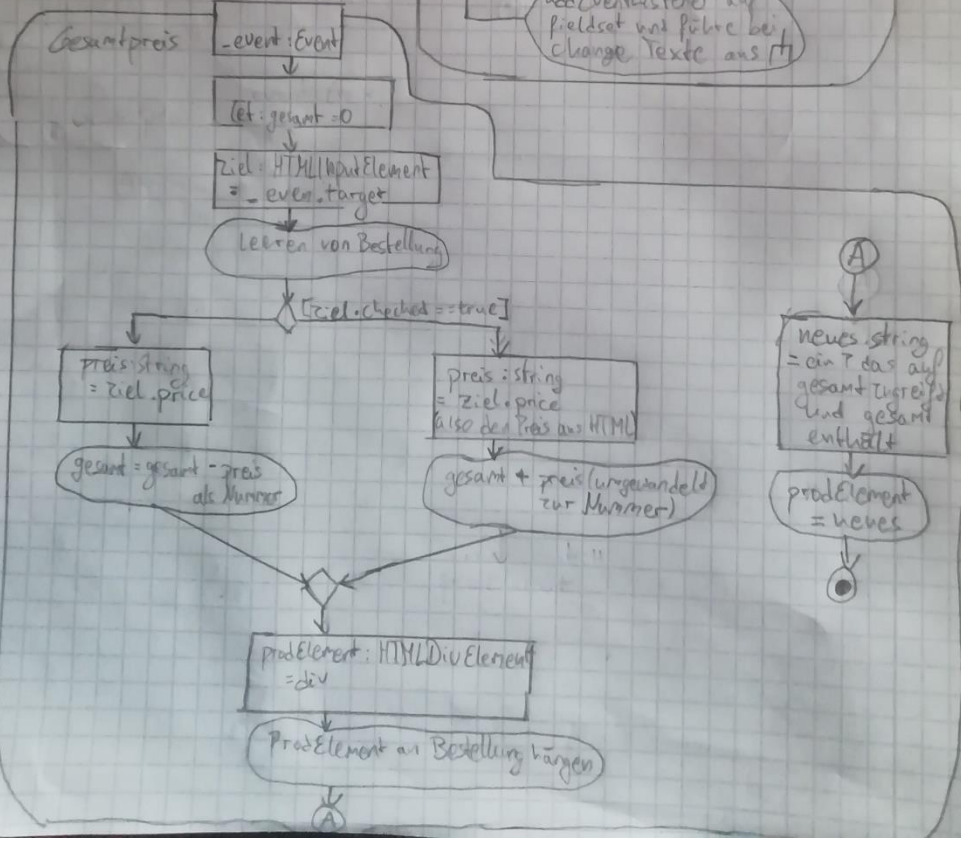 fieldset und führe bei
change Texte aus
Gesamtpreis
_event : Event
let : gesamt = 0
ziel : HTMLInputElement
= _even.target
Leeren von Bestellung
[ziel.checked == true]
preis : string
= ziel.price
gesamt = gesamt - preis
als Nummer
preis : string
= ziel.price
also den Preis aus HTML
gesamt + preis (umgewandelt
zur Nummer)
prodElement : HTMLDivElement
= div
ProdElement an Bestellung hängen
A
A
neues : string
= ein ? das auf
gesamt zugreift
und gesamt
enthält
prodElement
= neues